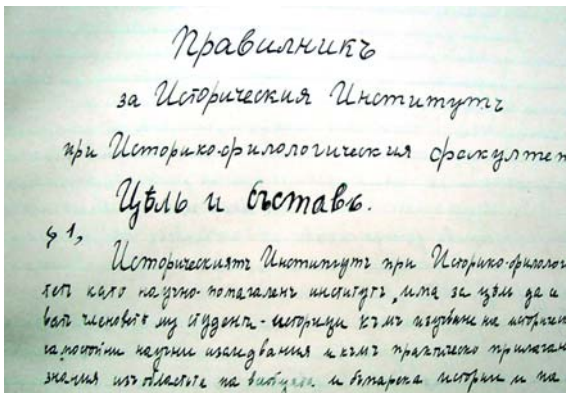 Правилникъ
за Историческия Институтъ
при Историко-филологическия факултет
Цѣль и съставъ.
§ 1,
Историческиятъ Институтъ при Историко-филолог
тетъ като научно-помагаленъ институтъ, има за цѣль да и
ватъ членоветѣ му студенти-историци къмъ изучване на историчес
самостойни научни изследвания и къмъ практическо прилаган
знания изъ областьта на всеобщата и българска история и на